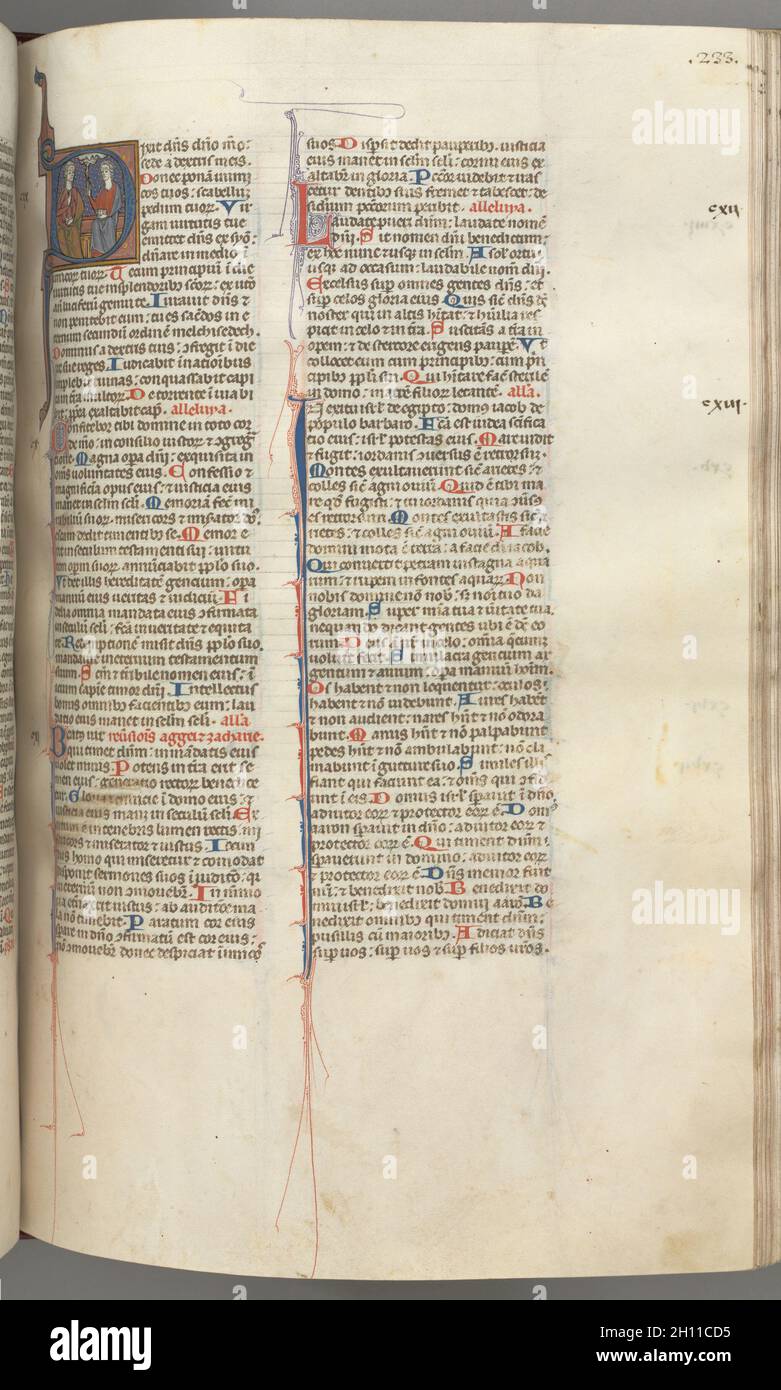 .233.
Dixit dn̄s dn̄o mō:
sede a dextris meis.
Donec ponā inimi
cos tuos: scabellū
pedum tuoꝝ. Vir
gam uirtutis tue
emittet dn̄s ex syō:
dn̄are in medio ī
imicoꝝ tuoꝝ. Tecum principiū ī die
uirtutis tue in splendoribꝫ sc̄oꝝ: ex uto
an̄ luciferū genui te. Iurauit dn̄s &
non penitebit eum: tu es sac̄dos in e
ternum secundū ordinē melchisedech.
Dominus a dextris tuis: ↄfregit ī die
ire sue reges. Iudicabit in nationibus
implebit ruinas: conquassabit capi
ta in tr̄a multoꝝ. De torrente ī uia bi
bit: ꝓpt̄a exaltabit cap̄. alleluya.
Confitebor tibi domine in toto cor
de mō: in consilio iustoꝝ & ↄgreg
tione. Magna opa dn̄i: exquisita in
om̄s uoluntates eius. Confessio &
magnificn̄a opus eius: & iusticia eius
manet in sc̄lm sc̄li. Memoriam fec̄ mi
rabiliū suoꝝ
escam dedit timentibꝫ se. Memor e
rit in seculum testamenti sui: uirtu
tem opum suoꝝ annūciabit pp̄lo suo.
Vt det illis hereditatē gencium: opa
manuū eius ueritas & iudiciū. Fi
delia omnia mandata eius ↄfirmata
in seculū sc̄li: fc̄a in ueritate & equita
te. Redēptionē misit dn̄s pp̄lo suo.
mandauit in eternum testamentum
suum. Sc̄m & t̄ribile nomen eius: ī
icium sapīe timor dn̄i. Intellectus
bonus omnibꝫ facientibꝫ eum: lau
datio eius manet in sc̄lm sc̄li. all̄a
Beatꝫ uir reūsiōis aggei & zacharie.
qui timet dn̄m: in mandatis eius
uolet nimis. Potens in tr̄a erit se
men eius: generatio rectoꝝ benedice
tur. Glori̇a & diuicie ī domo eius: &
iusticia eius man̄ in seculū sc̄li. Ex
ortum ē in tenebris lumen rectis: mi
sericors & miserator & iustus. Iocun
dus homo qui miseretur & comodat
disponit sermones suos ī iudicō: qꝛ
in eternū non ↄmouebr̄. In memo
ria etn̄a erit iustus: ab auditōe ma
la nō timebit. Paratum cor eius
spare in dn̄o ↄfirmatū est cor eius:
nō ↄmouebr̄ donec despiciat īimicꝰ
suos. Dispsit dedit paupibꝫ. iusticia
eius manet in sc̄lm sc̄li: cornu eius ex
altabr̄ in gloria. Pccōr uidebit & iras
cetur dentibꝫ suis fremet & tabescet: de
siderium pccōrum peribit. alleluya.
Laudate pueri dn̄m: laudate nomē
dn̄i. Sit nomen dn̄i benedictum:
ex hoc nunc & usqꝫ in sc̄lm. A solꝭ ortu
usqꝫ ad occasum: laudabile nom̄ dn̄i.
Excelsus sup omnes gentes dn̄s: et
sup celos gloria eius. Quis sic̄ dn̄s dꝰ
noster qui in altis hītat: & hūilia res
picit in celo & in tr̄a. Suscitās a tr̄a in
opem: & de stercore erigens paupē. Vt
collocet eum cum principibꝫ: cum pn̄
cipibꝫ pp̄li sui. Qui hītare fac̄ sterilē
in domo: matrē filioꝝ letantē. all̄a.
In exitu isrl̄ de egipto: domꝰ iacob de
populo barbaro. Fc̄a est iudea scīfica
tio eius: isrl̄ potestas eius. Mare uidit
& fugit: iordanis ↄuersus ē retrorsū.
Montes exultauerunt sic̄ arietes: &
colles sic̄ agni ouiū. Quid ē tibi ma
re qd̄ fugisti: & tu iordanis quia ↄūsꝰ
es retrorsum. Montes exultastis sic̄ a
rietes: & colles sic̄ agni ouiū. A facie
domini mota ē terra: a facie dī iacob.
Qui conuertit petram in stagna aqua
rum: & rupem in fontes aquaꝝ. Non
nobis domine nō nob̄: s; noī tuo da
gloriam. Super mīa tua & ūitate tua.
nequando dicant gentes ubi ē dꝰ eo
rum. Deus aut̄ in celo: om̄ia quecumqꝫ
uoluit fecit. Simulacra gencium ar
gentum & aurum: opa manuū hoīm.
Os habent & non loquentur: oculos
habent & nō uidebunt. Aures habēt
& non audient: nares hn̄t & nō odora
bunt. Manus hn̄t & non palpabunt
pedes hn̄t & nō ambulabunt: nō cla
mabunt ī gutture suo. Similes illis
fiant qui faciunt ea: & om̄s qui ↄfi
dunt ī eis. Domus isrl̄ sperauit ī dn̄o:
adiutor eoꝝ & protector eoꝝ ē. Domꝰ
aaron sparuit in dn̄o: adiutor eoꝝ &
protector eoꝝ ē. Qui timent dn̄m:
sperauerunt in domino: adiutor eoꝝ
& protector eoꝝ ē. Dn̄s memor fuit
nr̄i: & benedixit nob̄. Benedixit do
mui isrl̄: benedixit domui aarō. Be
nedixit omnibꝫ qui timent dn̄m:
pusillis cū maioribꝫ. Adiciat dn̄s
sup uos: sup uos & sup filios ur̄os.
cxii
cxiii.
cx
cxi
alamy
alamy
Image ID: 2H11CD5
www.alamy.com